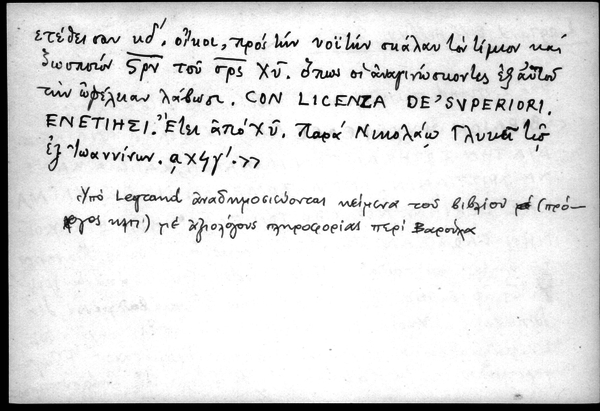 ετέθεισαν κδ΄. οἶκοι, πρὸς τὴν νοϊτὴν σκάλαν τὸν τίμιον καὶ
ζωοποιὸν ϛρν τοῦ σρς Χῦ. ὅπως οἱ ἀναγινώσκοντες ἐξ αὐτοῦ
τὴν ὠφέλειαν λάβωσι. CON LICENZA DE' SVPERIORI.
ΕΝΕΤΙΗΣΙ. Ἔτει ἀπὸ Χῦ. Παρὰ Νικολάῳ Γλυκεῖ τῷ
ἐξ Ἰωαννίνων. αχϟγ΄.>>
Ὑπὸ Legrand ἀναδημοσιεύονται κείμενα τοῦ βιβλίου (πρό-
λογος κλπ) μὲ ἀξιολόγους πληροφορίας περὶ Βαρούχα